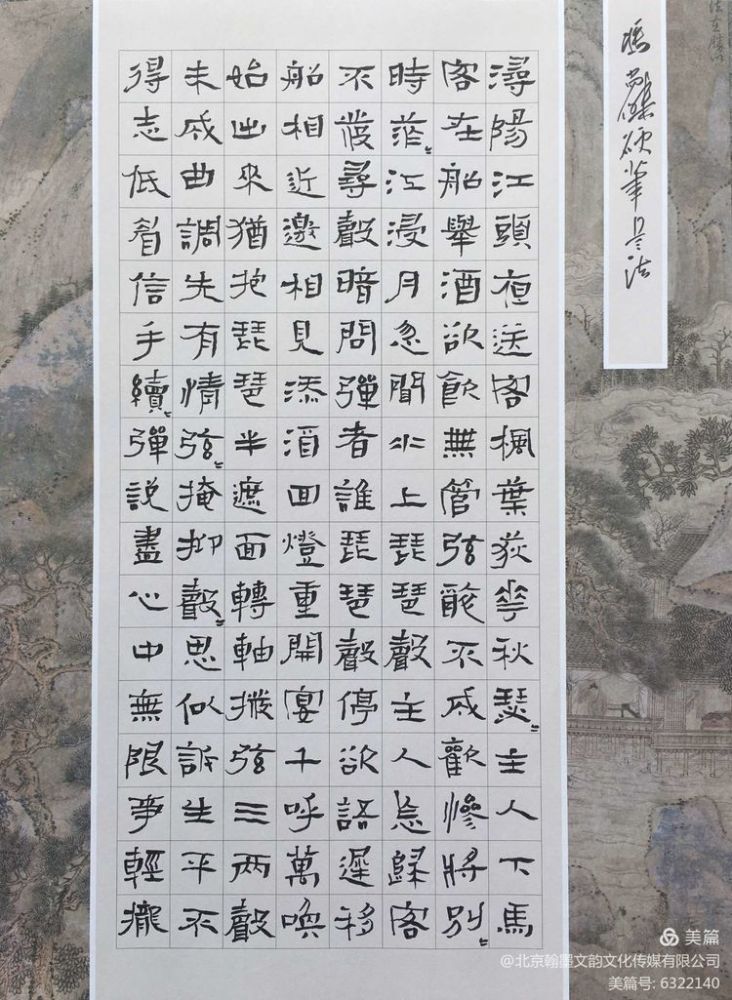 潯陽江頭夜送客楓葉荻花秋瑟〻主人下馬
客在船舉酒欲飲無管弦醉不成歡慘將別〻
時茫〻江浸月忽聞水上琵琶聲主人忘歸客
不發尋聲暗問彈者誰琵琶聲停欲語遲移
船相近邀相見添酒回燈重開宴千呼萬喚
始出來猶抱琵琶半遮面轉軸撥弦三兩聲
未成曲調先有情弦〻掩抑聲〻思似訴生平不
得志低眉信手續〻彈說盡心中無限事輕攏
硬筆書法
美篇
@北京翰墨文韵文化传媒有限公司
美篇号: 6322140